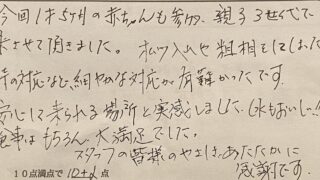 今回1才5ヶ月の赤ちゃんも参加、親子3世代で
来させて頂きました。おムツ入れや粗相をしてしまった
時の対応など、細やかな対応が有難かったです。
安心して来られる場所と実感しました。(水もおいしい!!)
食事はもちろん、大満足でした。
スタッフの皆様のやさしさ、あたたかさに
感謝です。
10点満点で10+α点